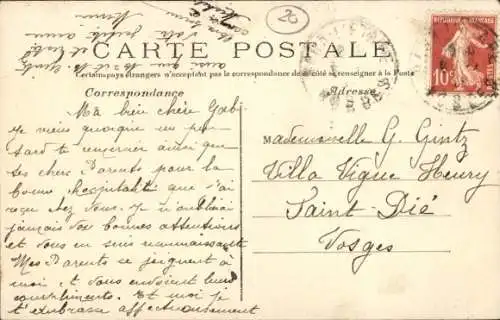 CARTE POSTALE
Certains pays étrangers n'acceptent pas la correspondance de ce côté se renseigner à la Poste
Correspondance
Adresse
20
RÉPUBLIQUE FRANÇAISE
10c
Ma bien chère Gabi
Je viens quoique un peu
tard te remercier ainsi que
tes chers Parents pour la
bonne hospitalité que j'ai
reçu chez vous. Je n'oublierai
jamais vos bonnes attentions
et vous en suis reconnaissante
Mes Parents se joignent à
moi et vous envoient leurs
compliments. Et moi je
t'embrasse affectueusement
Mademoiselle G. Gintz
Villa Vigne Henry
Saint-Dié
Vosges